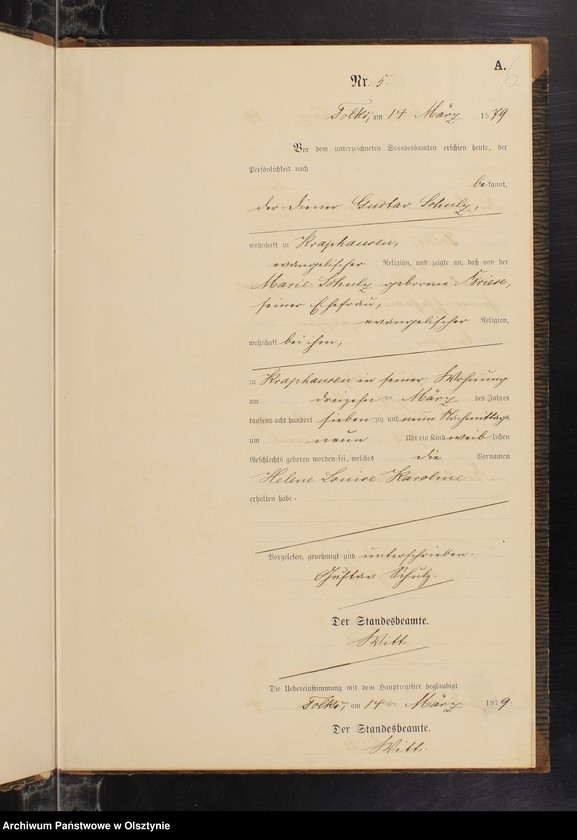 A.
6
Nr. 5.
Tolks, am 14 März 1879.
Vor dem unterzeichneten Standesbeamten erschien heute, der
Persönlichkeit nach
bekannt,
der Diener Gustav Schulz,
wohnhaft zu Kraphausen,
evangelischer Religion, und zeigte an, daß von der
Marie Schulz geborene Friese,
seiner Ehefrau,
evangelischer Religion,
wohnhaft bei ihm,
zu Kraphausen in seiner Wohnung
am dreizehn März des Jahres
tausend acht hundert sieben zig und neun Nachmittags
um neun Uhr ein Kind weib lichen
Geschlechts geboren worden sei, welches die Vornamen
Helene Louise Karoline
erhalten habe.
Vorgelesen, genehmigt und unterschrieben.
Gustav Schulz.
Der Standesbeamte.
Witt.
Die Uebereinstimmung mit dem Hauptregister beglaubigt
Tolks, am 14 März 1879.
Der Standesbeamte.
Witt.
Archiwum Państwowe w Olsztynie